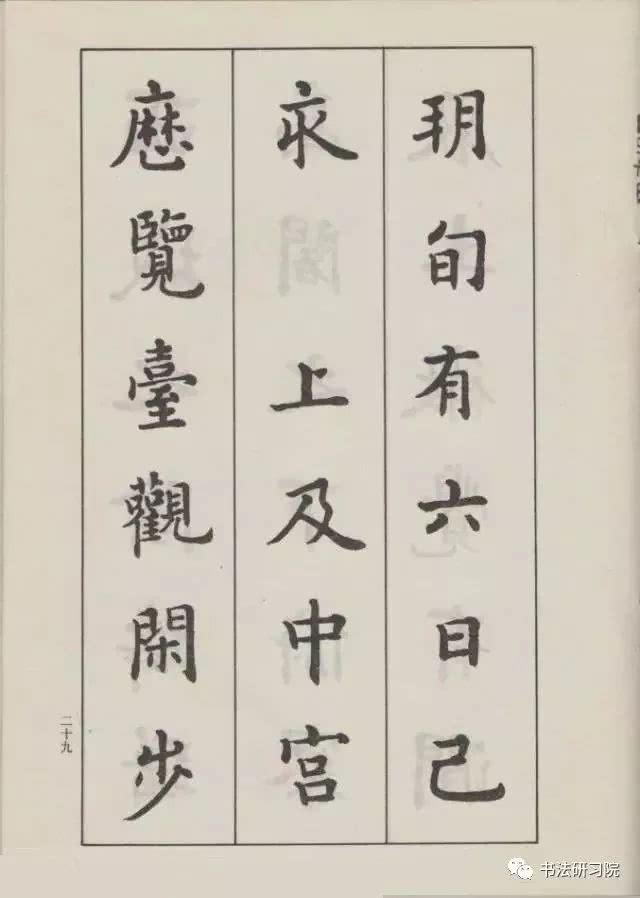 朔旬有六日己
亥上及中宮
歷覽臺觀閑步
二十九
书法研习院